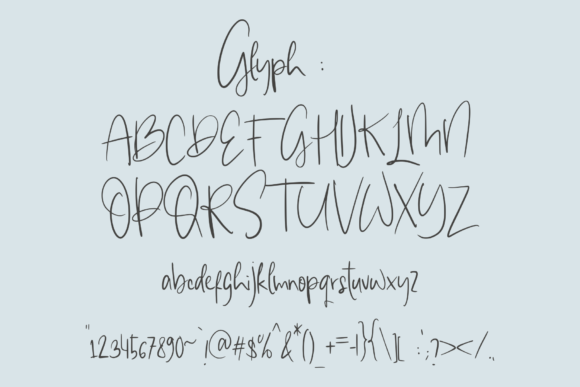 Glyph :
ABCDEFGHIJKLMN
OPQRSTUVWXYZ
abcdefghijklmnopqrstuvwxyz
"1234567890~`!@#$%^&*()_+=-}{\][:';?></.,